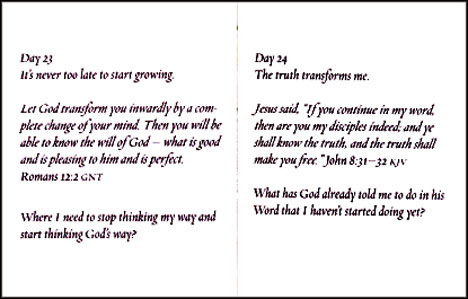 Day 23
It's never too late to start growing.
Let God transform you inwardly by a com-
plete change of your mind. Then you will be
able to know the will of God – what is good
and is pleasing to him and is perfect.
Romans 12:2 GNT
Where I need to stop thinking my way and
start thinking God's way?
Day 24
The truth transforms me.
Jesus said, "If you continue in my word,
then are you my disciples indeed; and ye
shall know the truth, and the truth shall
make you free." John 8:31–32 KJV
What has God already told me to do in his
Word that I haven't started doing yet?